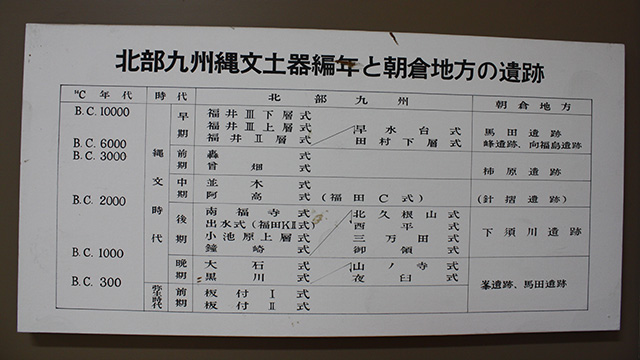 北部九州縄文土器編年と朝倉地方の遺跡
¹⁴C 年代 時代 北部九州 朝倉地方
B.C. 10000
B.C. 6000
B.C. 3000
B.C. 2000
B.C. 1000
B.C. 300
縄文時代
弥生時代
早期
前期
中期
後期
晩期
前期
福井Ⅲ下層式
福井Ⅲ上層式 早水台式 馬田遺跡
福井Ⅱ層式 田村下層式 峰遺跡、向福島遺跡
轟式
曾畑式 柿原遺跡
並木式
阿高式(福田C式) (針摺遺跡)
南福寺式 北久根山式
出水式(福田KⅡ式) 西平式
小池原上層式 三万田式 下須川遺跡
鐘崎式 御領式
大石式 山ノ寺式
黒川式 夜臼式 峯遺跡、馬田遺跡
板付Ⅰ式
板付Ⅱ式